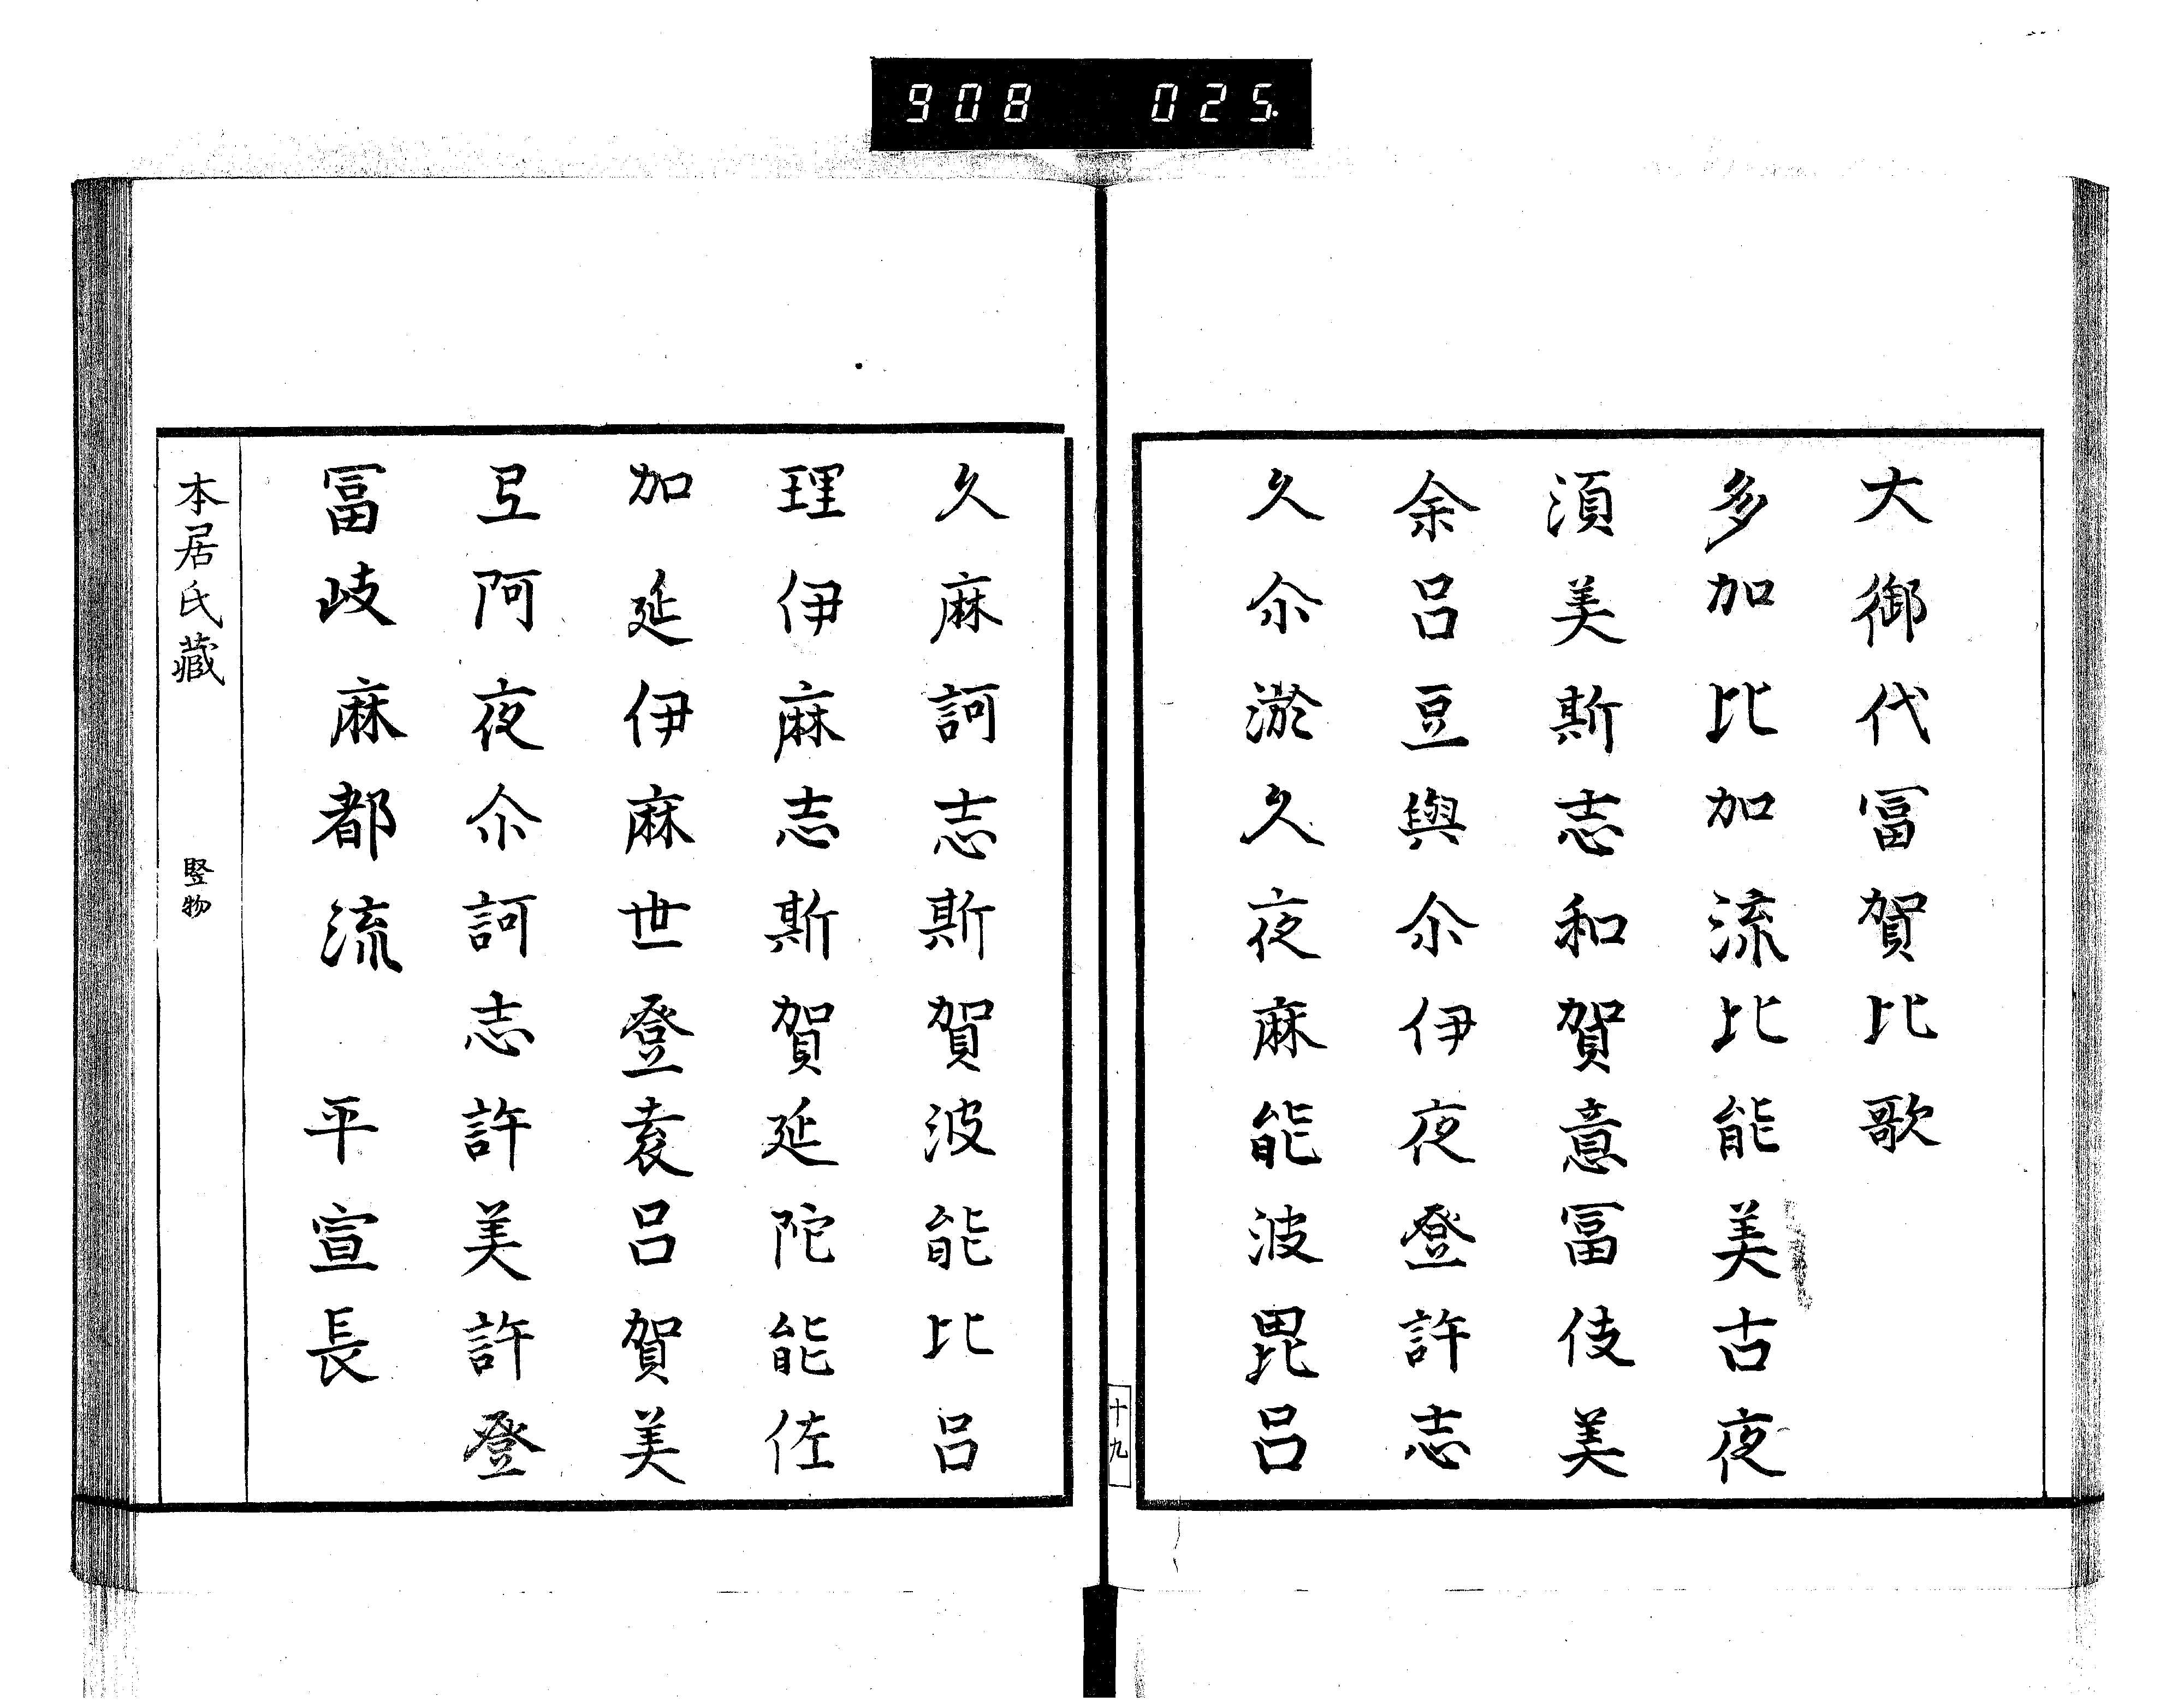 908 025.
大御代冨賀比歌
多加比加流比能美古夜
湏美斯志和賀意冨伎美
余呂豆與尒伊夜登許志
久尒淤久夜麻能波毘呂
十九
久麻訶志斯賀波能比呂
理伊麻志斯賀延陀能佐
加延伊麻世登袁呂賀美
弖阿夜尒訶志許美許登
冨岐麻都流 平宣長
本居氏藏 竪物